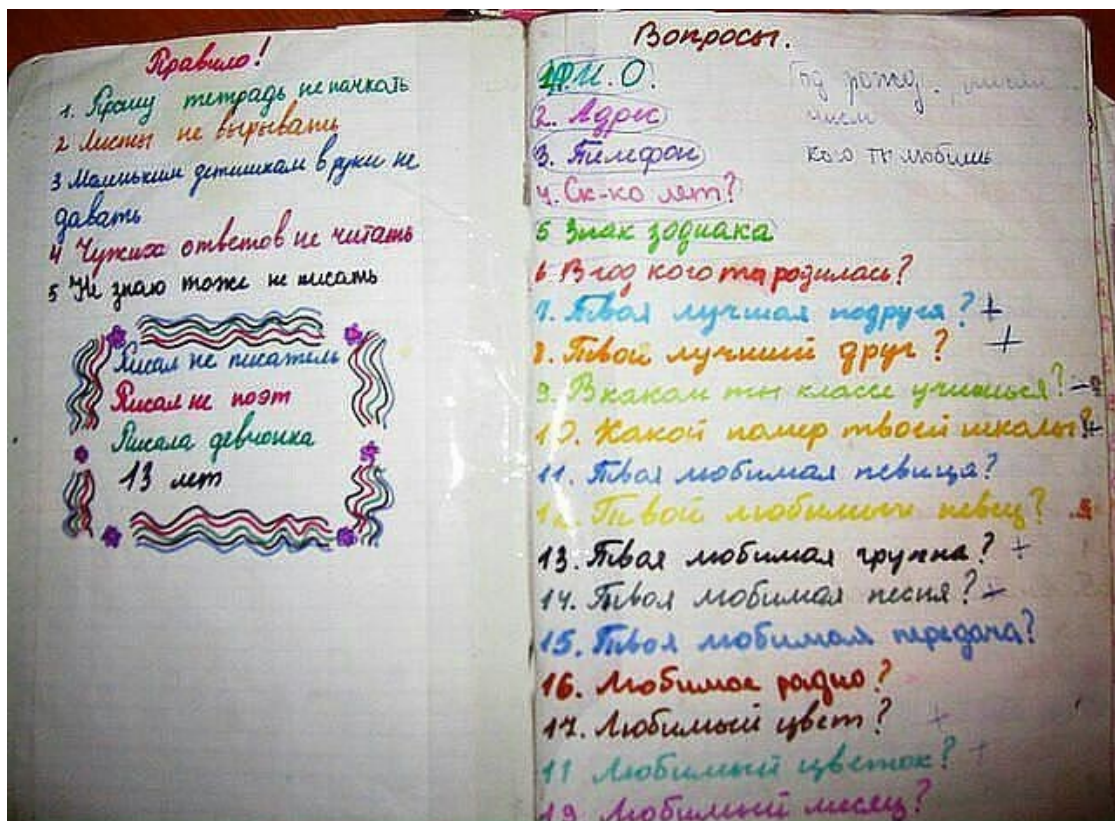 Правило!
1. Прошу тетрадь не пачкать
2 Листы не вырывать
3 Маленьким детишкам в руки не
давать
4 Чужих ответов не читать
5 Не знаю тоже не писать
Писал не писатель
Писал не поэт
Писала девчонка
13 лет
Вопросы.
1. Ф.И.О.
2. Адрес
3. Тилефон
4. Ск-ко лет?
5 Знак зодиака
6. В год кого ты родилась?
7. Твоя лучшая подруга? +
8. Твой лучший друг? +
9. В каком ты классе учишься?
10. Какой номер твоей школы? +
11. Твоя любимая певица?
12. Твой любимый певец?
13. Твоя любимая группа? +
14. Твоя любимая песня? +
15. Твоя любимая передача?
16. Любимое радио?
17. Любимый цвет? +
11 Любимый цветок? +
19. Любимый месяц?
Год рожд.
число
кого ты любишь